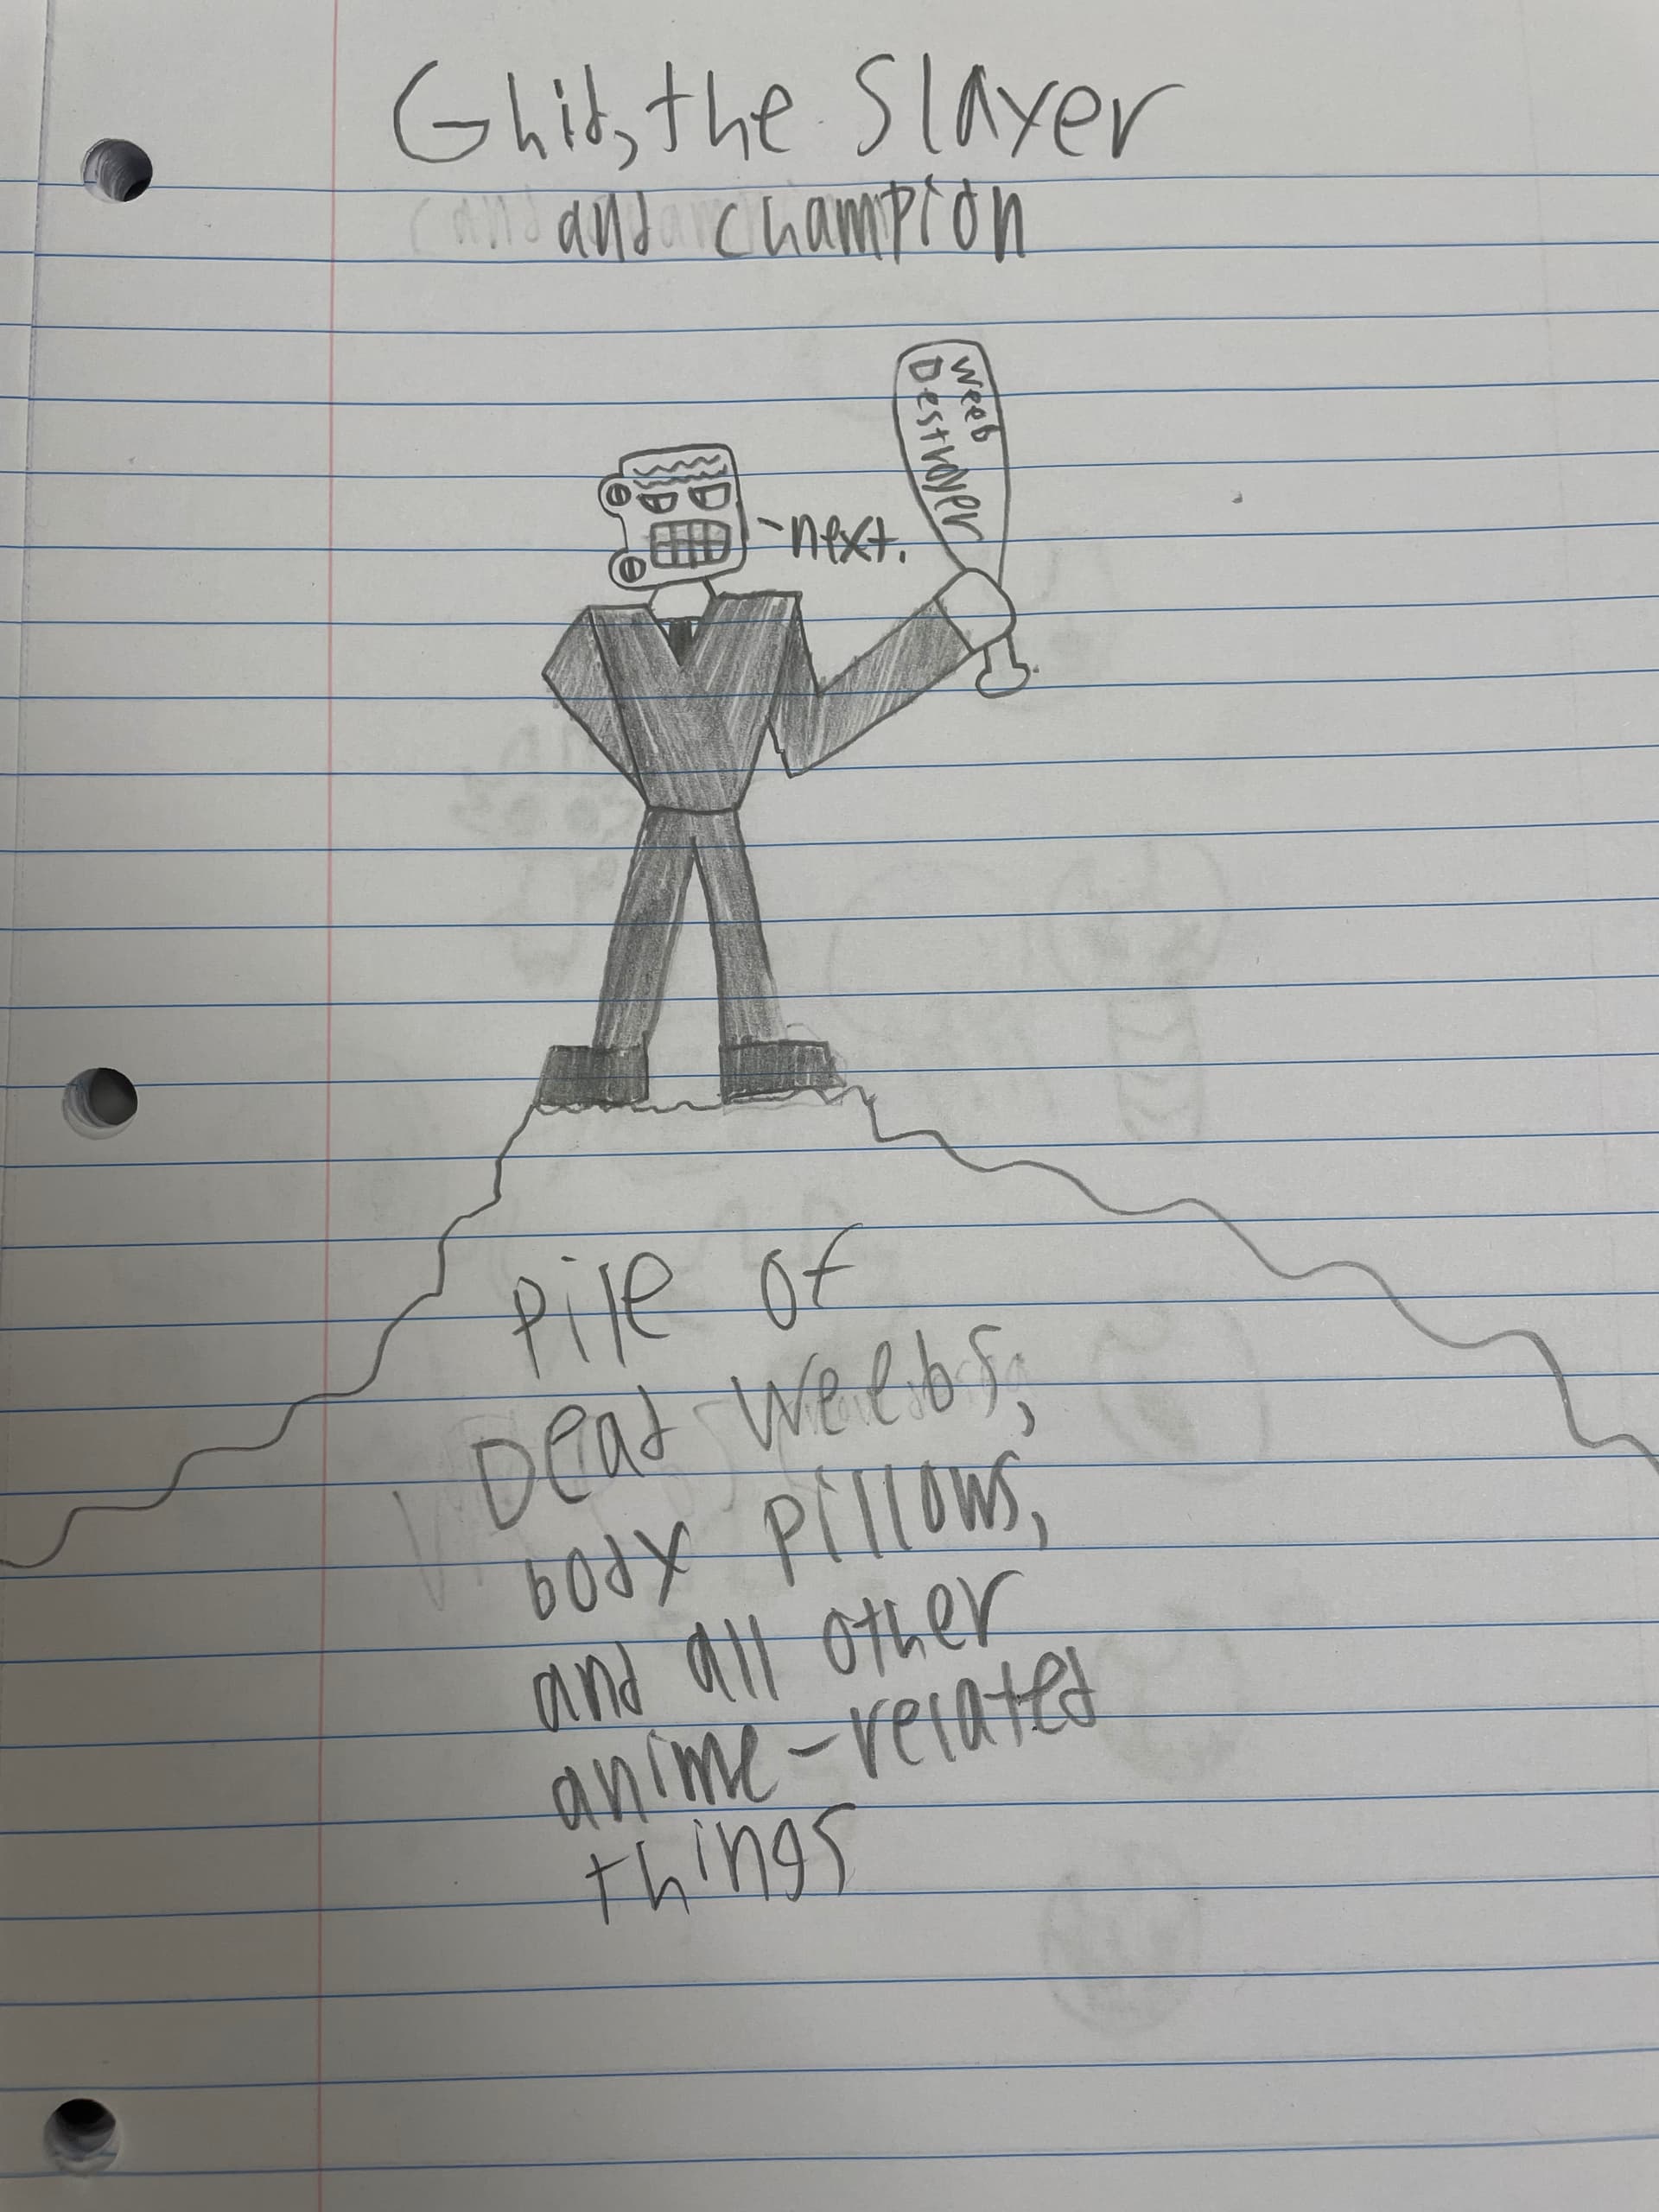 Ghid, the Slayer
and champion
Weeb
Destroyer
-next.
pile of
Dead weebs,
body pillows,
and all other
anime-related
things